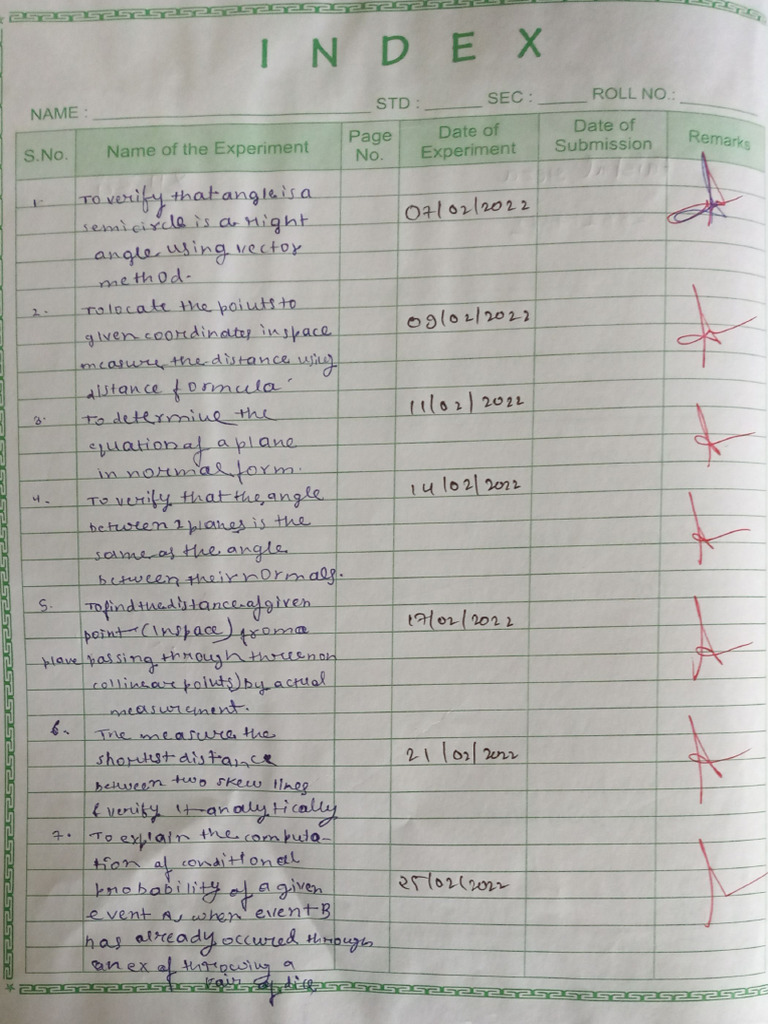 INDEX
NAME : STD : SEC : ROLL NO.:
S.No. Name of the Experiment Page No. Date of Experiment Date of Submission Remarks
1. To verify that angle is a
semicircle is a right 07/02/2022
angle using vector
method.
2. To locate the points to
given coordinates in space 09/02/2022
measure the distance using
distance formula
3. To determine the 11/02/2022
equation of a plane
in normal form.
4. To verify that the angle 14/02/2022
between 2 planes is the
same as the angle
between their normals.
5. To find the distance of given
point (In space) from a 17/02/2022
plane passing through three non
collinear points) by actual
measurement.
6. The measure the
shortest distance 21/02/2022
between two skew lines
& verify it analytically
7. To explain the computa-
tion of conditional
probability of a given 25/02/2022
event A, when event B
has already occured through
an ex of throwing a
pair of dice